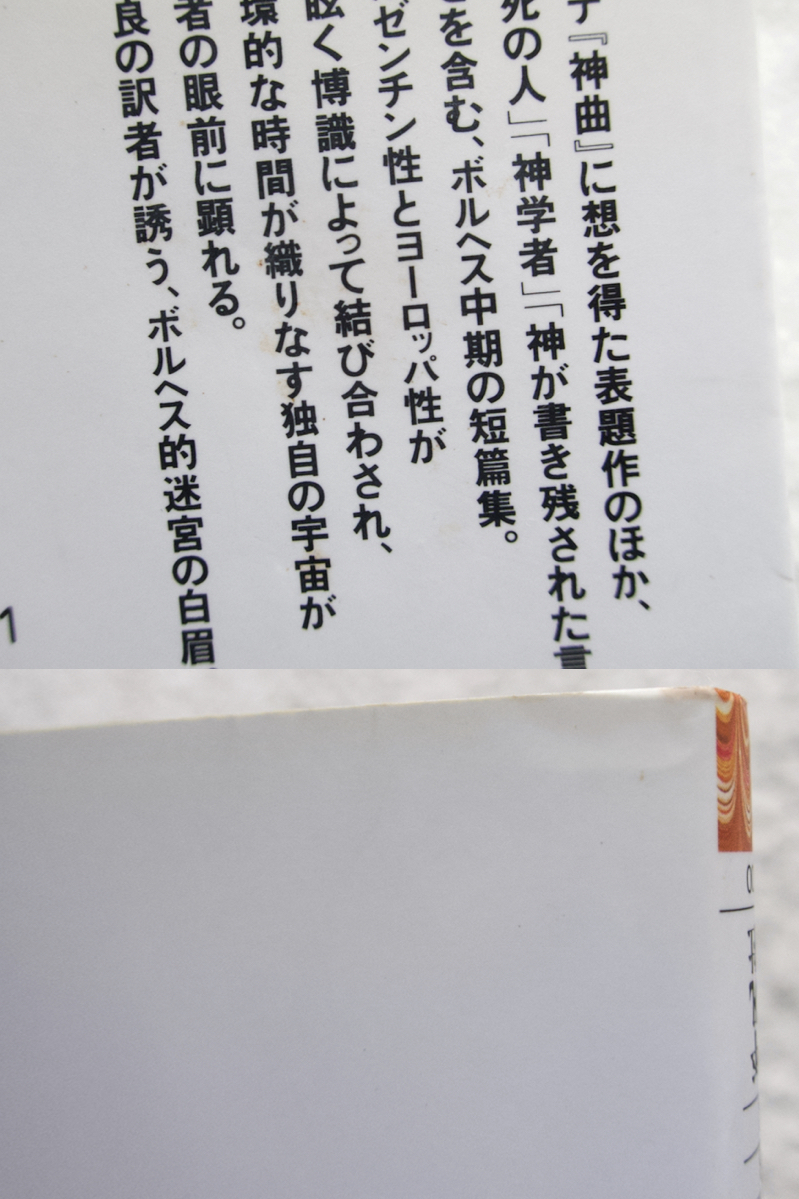 テ『神曲』に想を得た表題作のほか、
死の人」「神学者」「神が書き残された言
を含む、ボルヘス中期の短篇集。
ゼンチン性とヨーロッパ性が
眩く博識によって結び合わされ、
環的な時間が織りなす独自の宇宙が
者の眼前に顕れる。
良の訳者が誘う、ボルヘス的迷宮の白眉
1